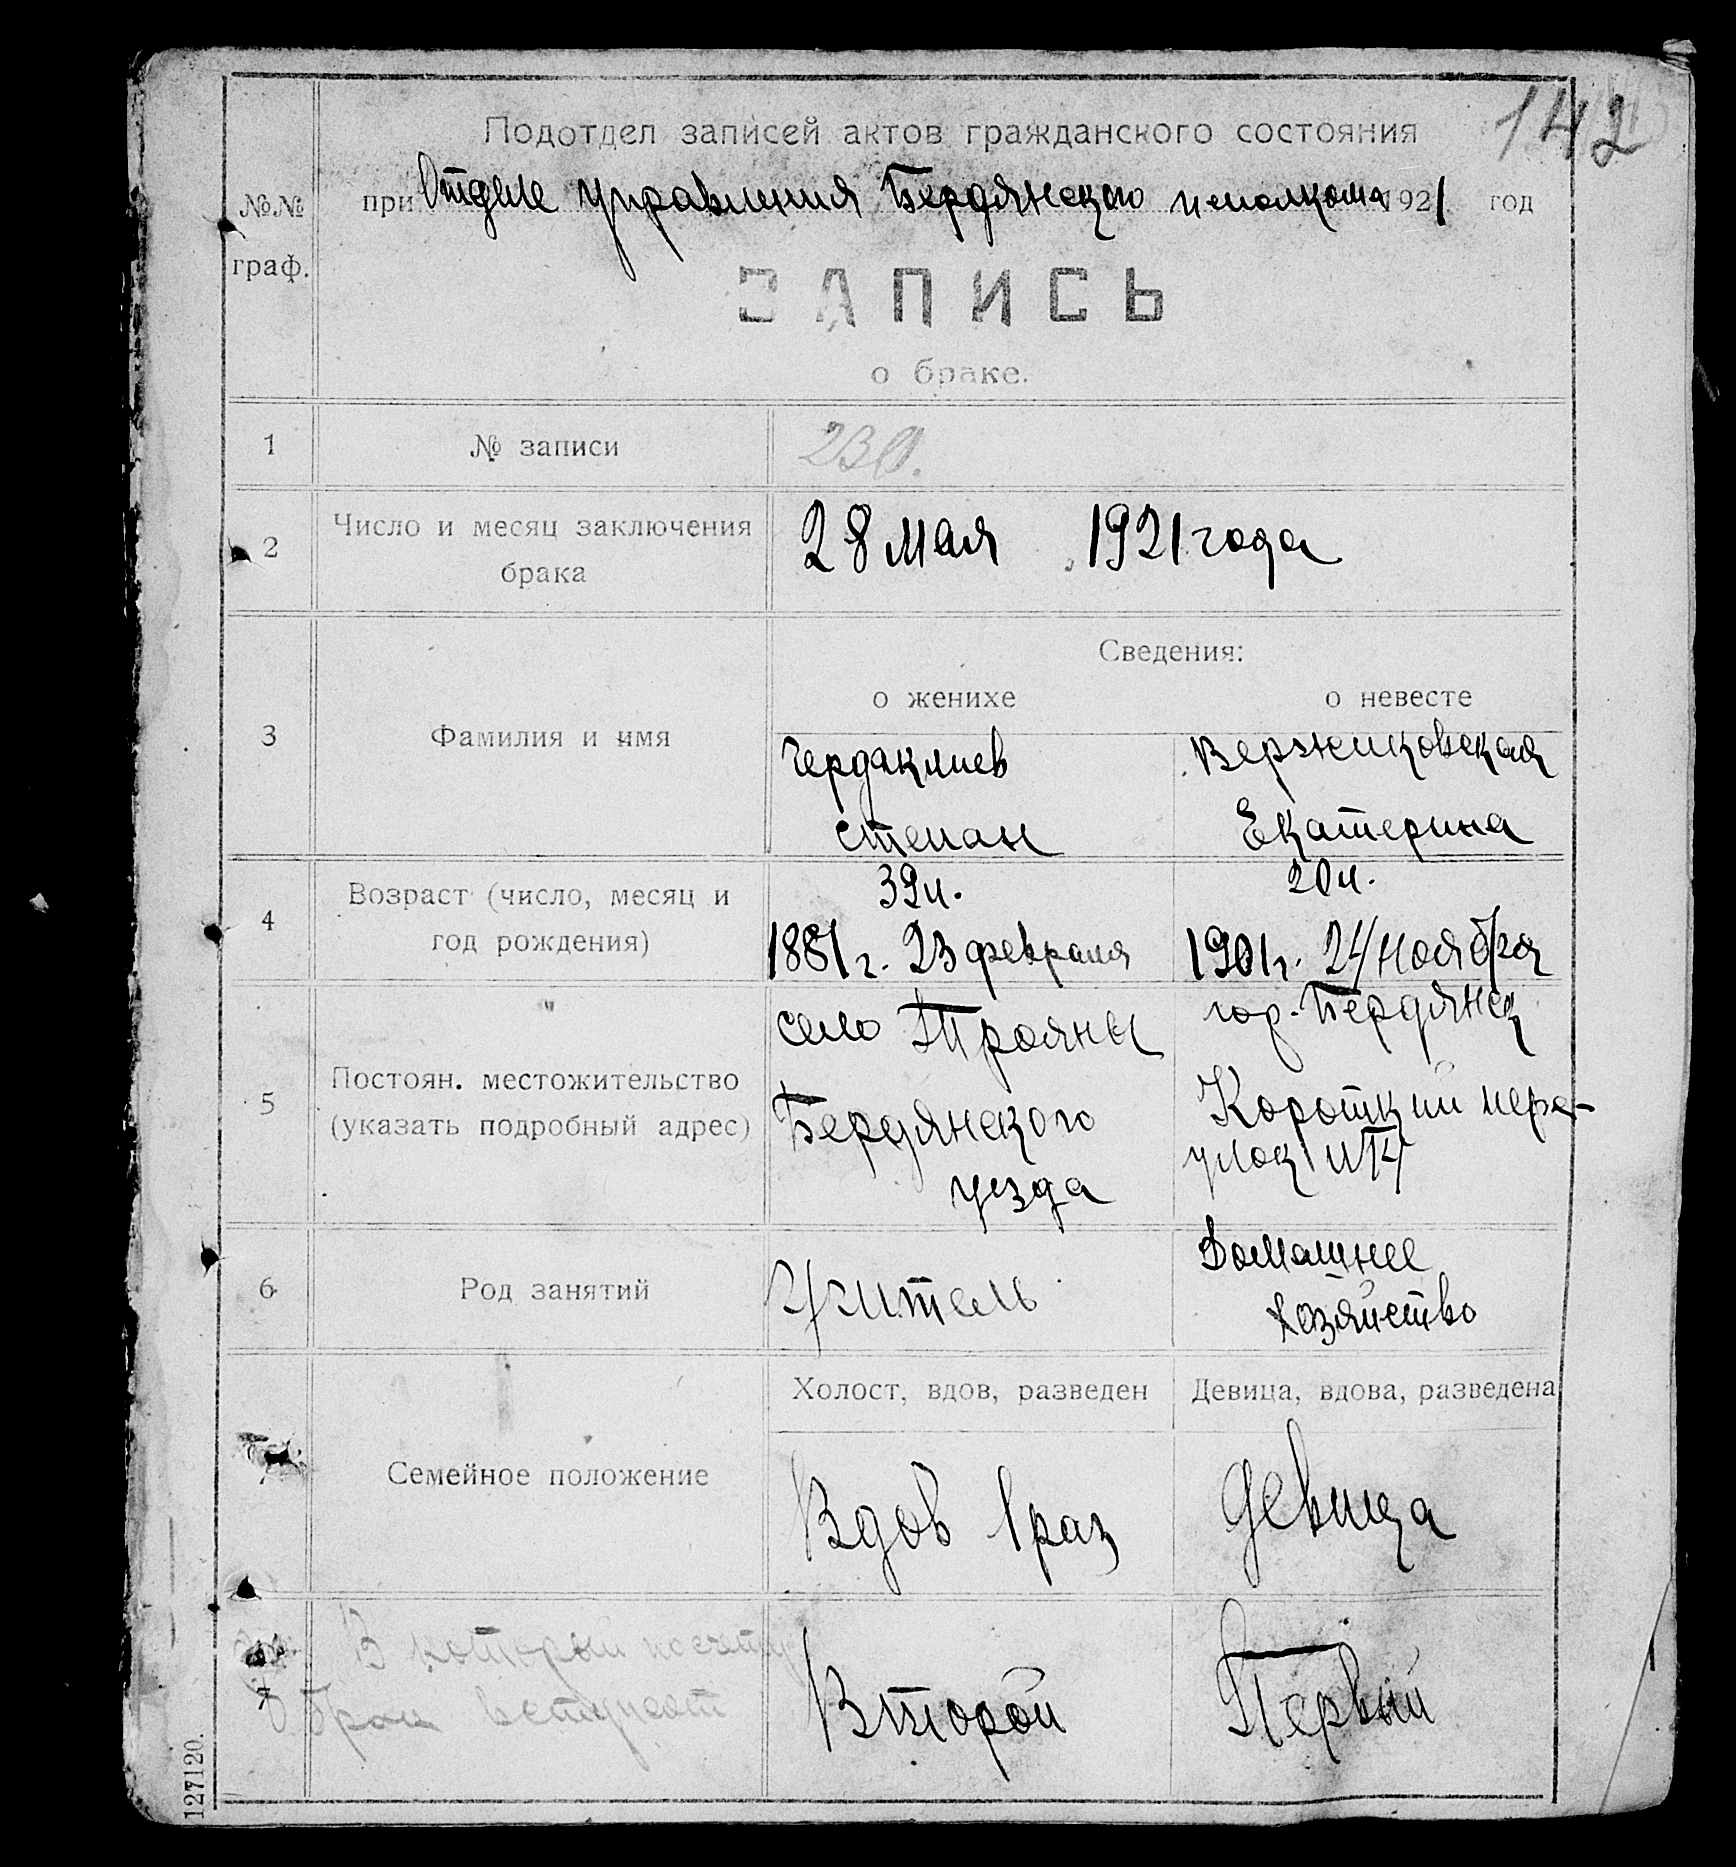 142
Подотдел записей актов гражданского состояния
№№ граф.
при Отделе управления Бердянского исполкома 1921 год
ЗАПИСЬ
о браке.
1 № записи 230.
2 Число и месяц заключения брака 28 мая 1921 года
Сведения:
о женихе о невесте
3 Фамилия и имя
Чердаклиев Вержиковская
Степан Екатерина
39 л. 20 л.
4 Возраст (число, месяц и год рождения)
1881 г. 23 февраля 1901 г. 24 ноября
село Трояны гор. Бердянск
5 Постоян. местожительство (указать подробный адрес)
Бердянского Короткий пере-
уезда улок
6 Род занятий
Учитель Домашнее
хозяйство
Холост, вдов, разведен Девица, вдова, разведена
Семейное положение
Вдов 1 раз девица
7 В который по счету
брак вступают
Второй Первый
127120.